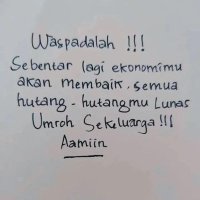 Waspadalah !!!
Sebentar lagi ekonomimu
akan membaik. semua
hutang - hutangmu Lunas
Umroh Sekeluarga !!!
Aamiin